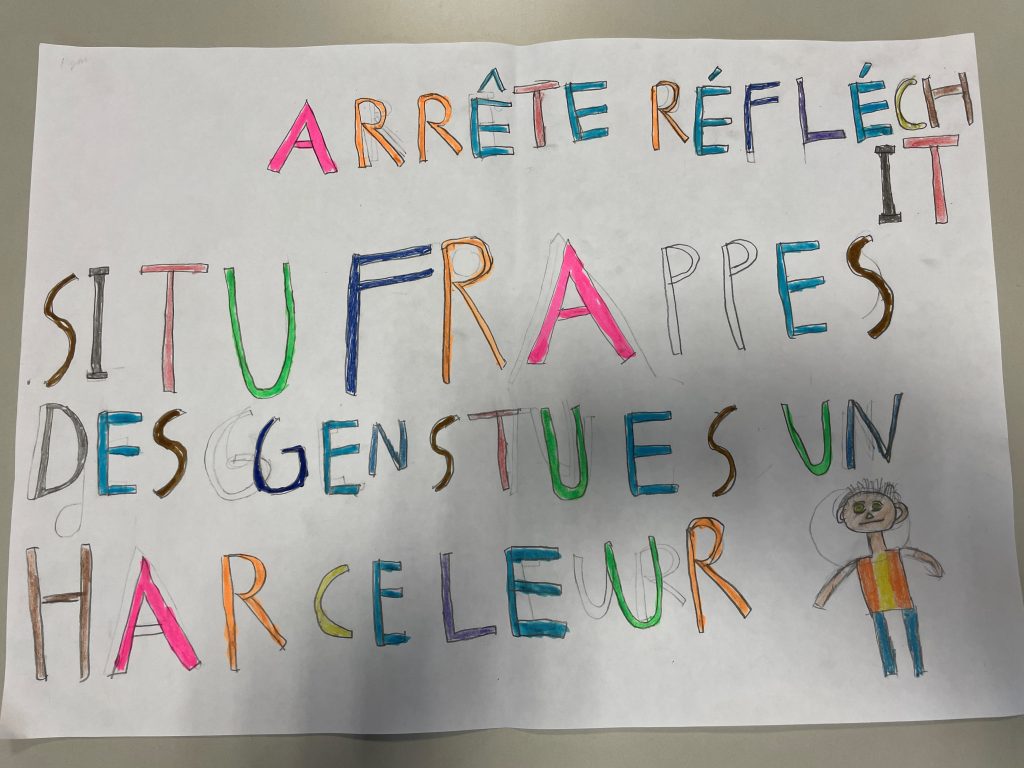 ARRÊTE RÉFLÉCH
IT
SI TU FRAPPES
DES GENS TU ES UN
HARCELEUR